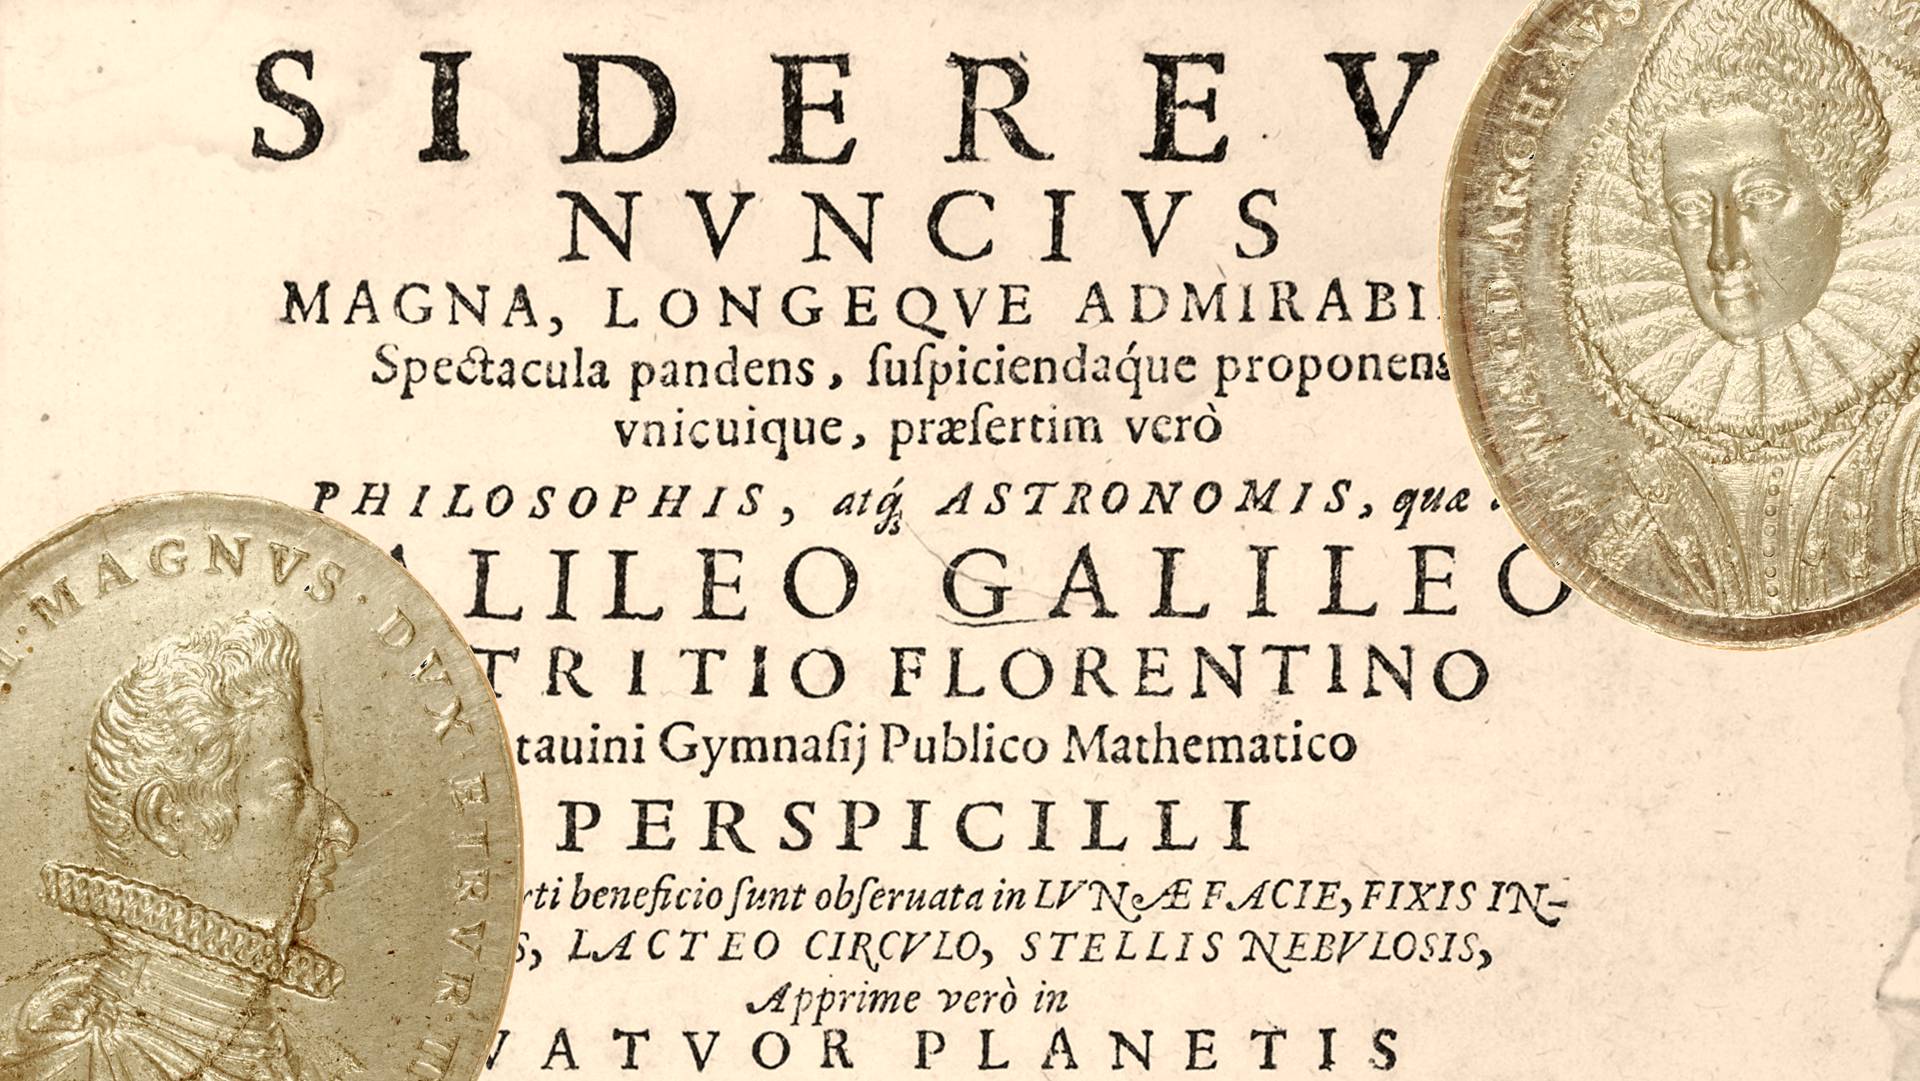 SIDEREV
NVNCIVS
MAGNA, LONGEQVE ADMIRABI
Spectacula pandens, ſuſpiciendaq́ue proponens
vnicuique, præſertim verò
PHILOSOPHIS, atq́; ASTRONOMIS, quæ
ALILEO GALILEO
TRITIO FLORENTINO
tauini Gymnaſij Publico Mathematico
PERSPICILLI
rti beneficio ſunt obſeruata in LVNÆ FACIE, FIXIS IN-
S, LACTEO CIRCVLO, STELLIS NEBVLOSIS,
Apprime verò in
VATVOR PLANETIS
MAGNVS · DVX · ETRVR · II
MAGD · ARCH · AVS